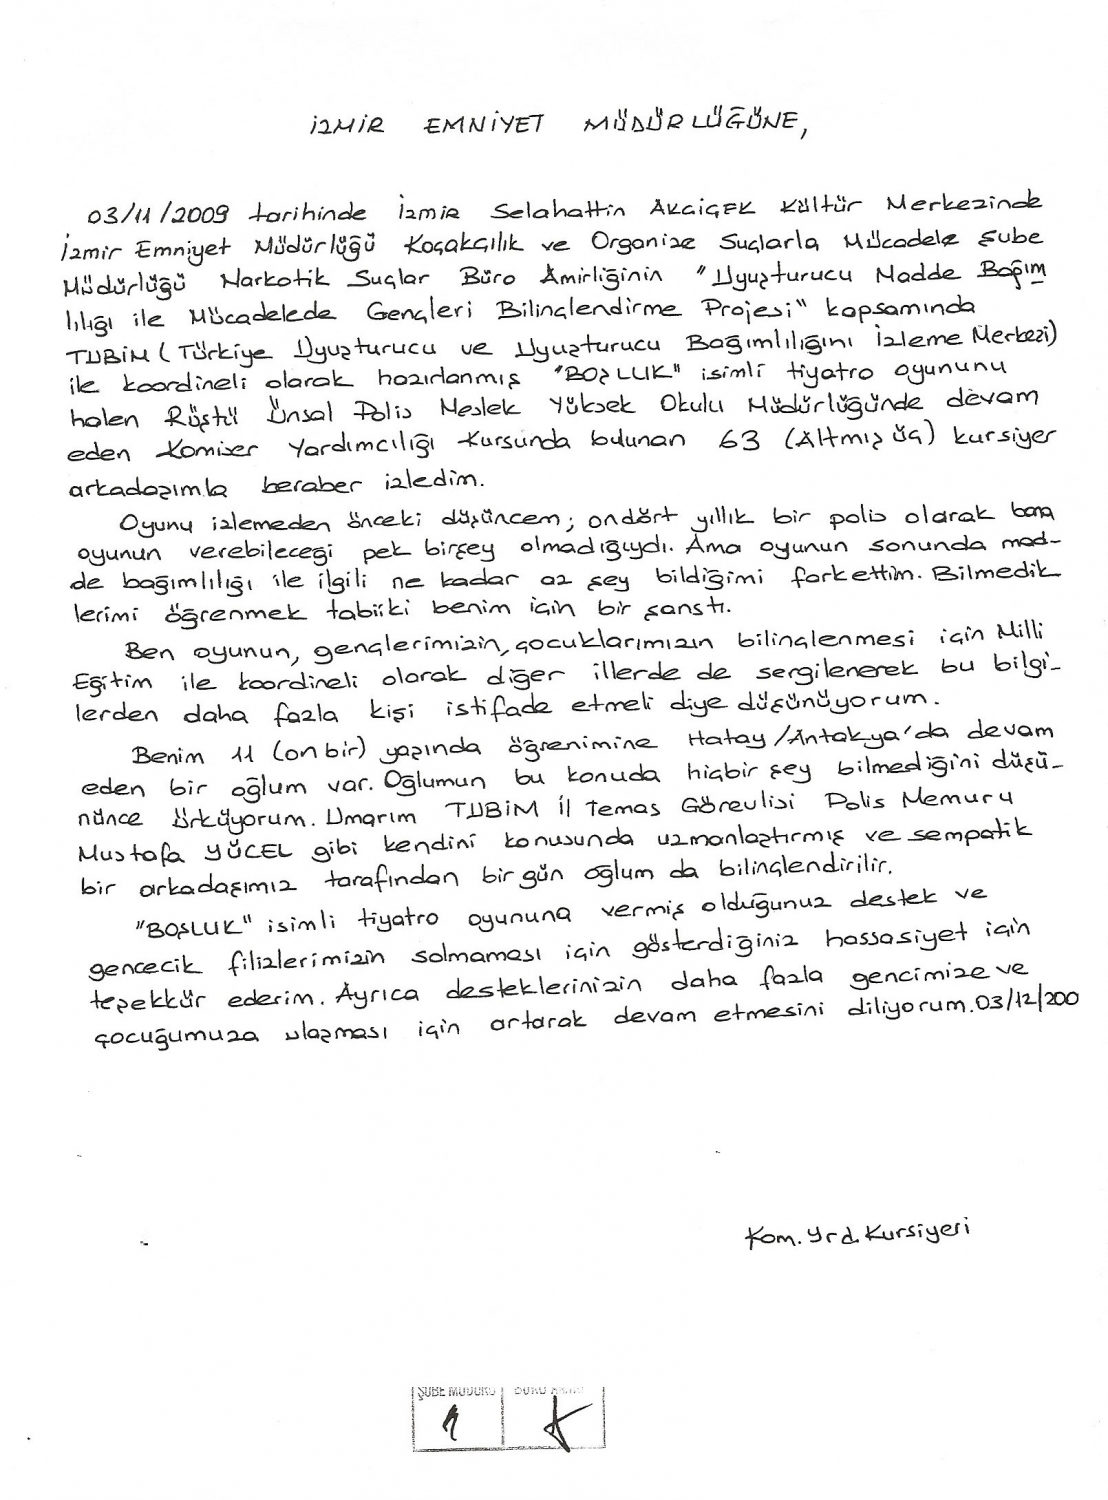 İZMİR EMNİYET MÜDÜRLÜĞÜNE,
03/11/2009 tarihinde İzmir Selahattin AKÇİÇEK Kültür Merkezinde
İzmir Emniyet Müdürlüğü Kaçakçılık ve Organize Suçlarla Mücadele Şube
Müdürlüğü Narkotik Suçlar Büro Amirliğinin "Uyuşturucu Madde Bağım
lılığı ile Mücadelede Gençleri Bilinçlendirme Projesi" kapsamında
TUBİM (Türkiye Uyuşturucu ve Uyuşturucu Bağımlılığını İzleme Merkezi)
ile koordineli olarak hazırlanmış "BOŞLUK" isimli tiyatro oyununu
halen Rüştü Ünsal Polis Meslek Yüksek Okulu Müdürlüğünde devam
eden Komiser Yardımcılığı Kursunda bulunan 63 (Altmış üç) kursiyer
arkadaşımla beraber izledim.
Oyunu izlemeden önceki düşüncem; ondört yıllık bir polis olarak bana
oyunun verebileceği pek birşey olmadığıydı. Ama oyunun sonunda mad-
de bağımlılığı ile ilgili ne kadar az şey bildiğimi farkettim. Bilmedik
lerimi öğrenmek tabiiki benim için bir şanstı.
Ben oyunun, gençlerimizin, çocuklarımızın bilinçlenmesi için Milli
Eğitim ile koordineli olarak diğer illerde de sergilenerek bu bilgi-
lerden daha fazla kişi istifade etmeli diye düşünüyorum.
Benim 11 (on bir) yaşında öğrenimine Hatay/Antakya'da devam
eden bir oğlum var. Oğlumun bu konuda hiçbir şey bilmediğini düşü-
nünce ürküyorum. Umarım TUBİM İl Temas Görevlisi Polis Memuru
Mustafa YÜCEL gibi kendini konusunda uzmanlaştırmış ve sempatik
bir arkadaşımız tarafından bir gün oğlum da bilinçlendirilir.
"BOŞLUK" isimli tiyatro oyununa vermiş olduğunuz destek ve
gencecik filizlerimizin solmaması için gösterdiğiniz hassasiyet için
teşekkür ederim. Ayrıca desteklerinizin daha fazla gencimize ve
çocuğumuza ulaşması için artarak devam etmesini diliyorum. 03/12/200
Kom. Yrd. Kursiyeri
ŞUBE MÜDÜRÜ